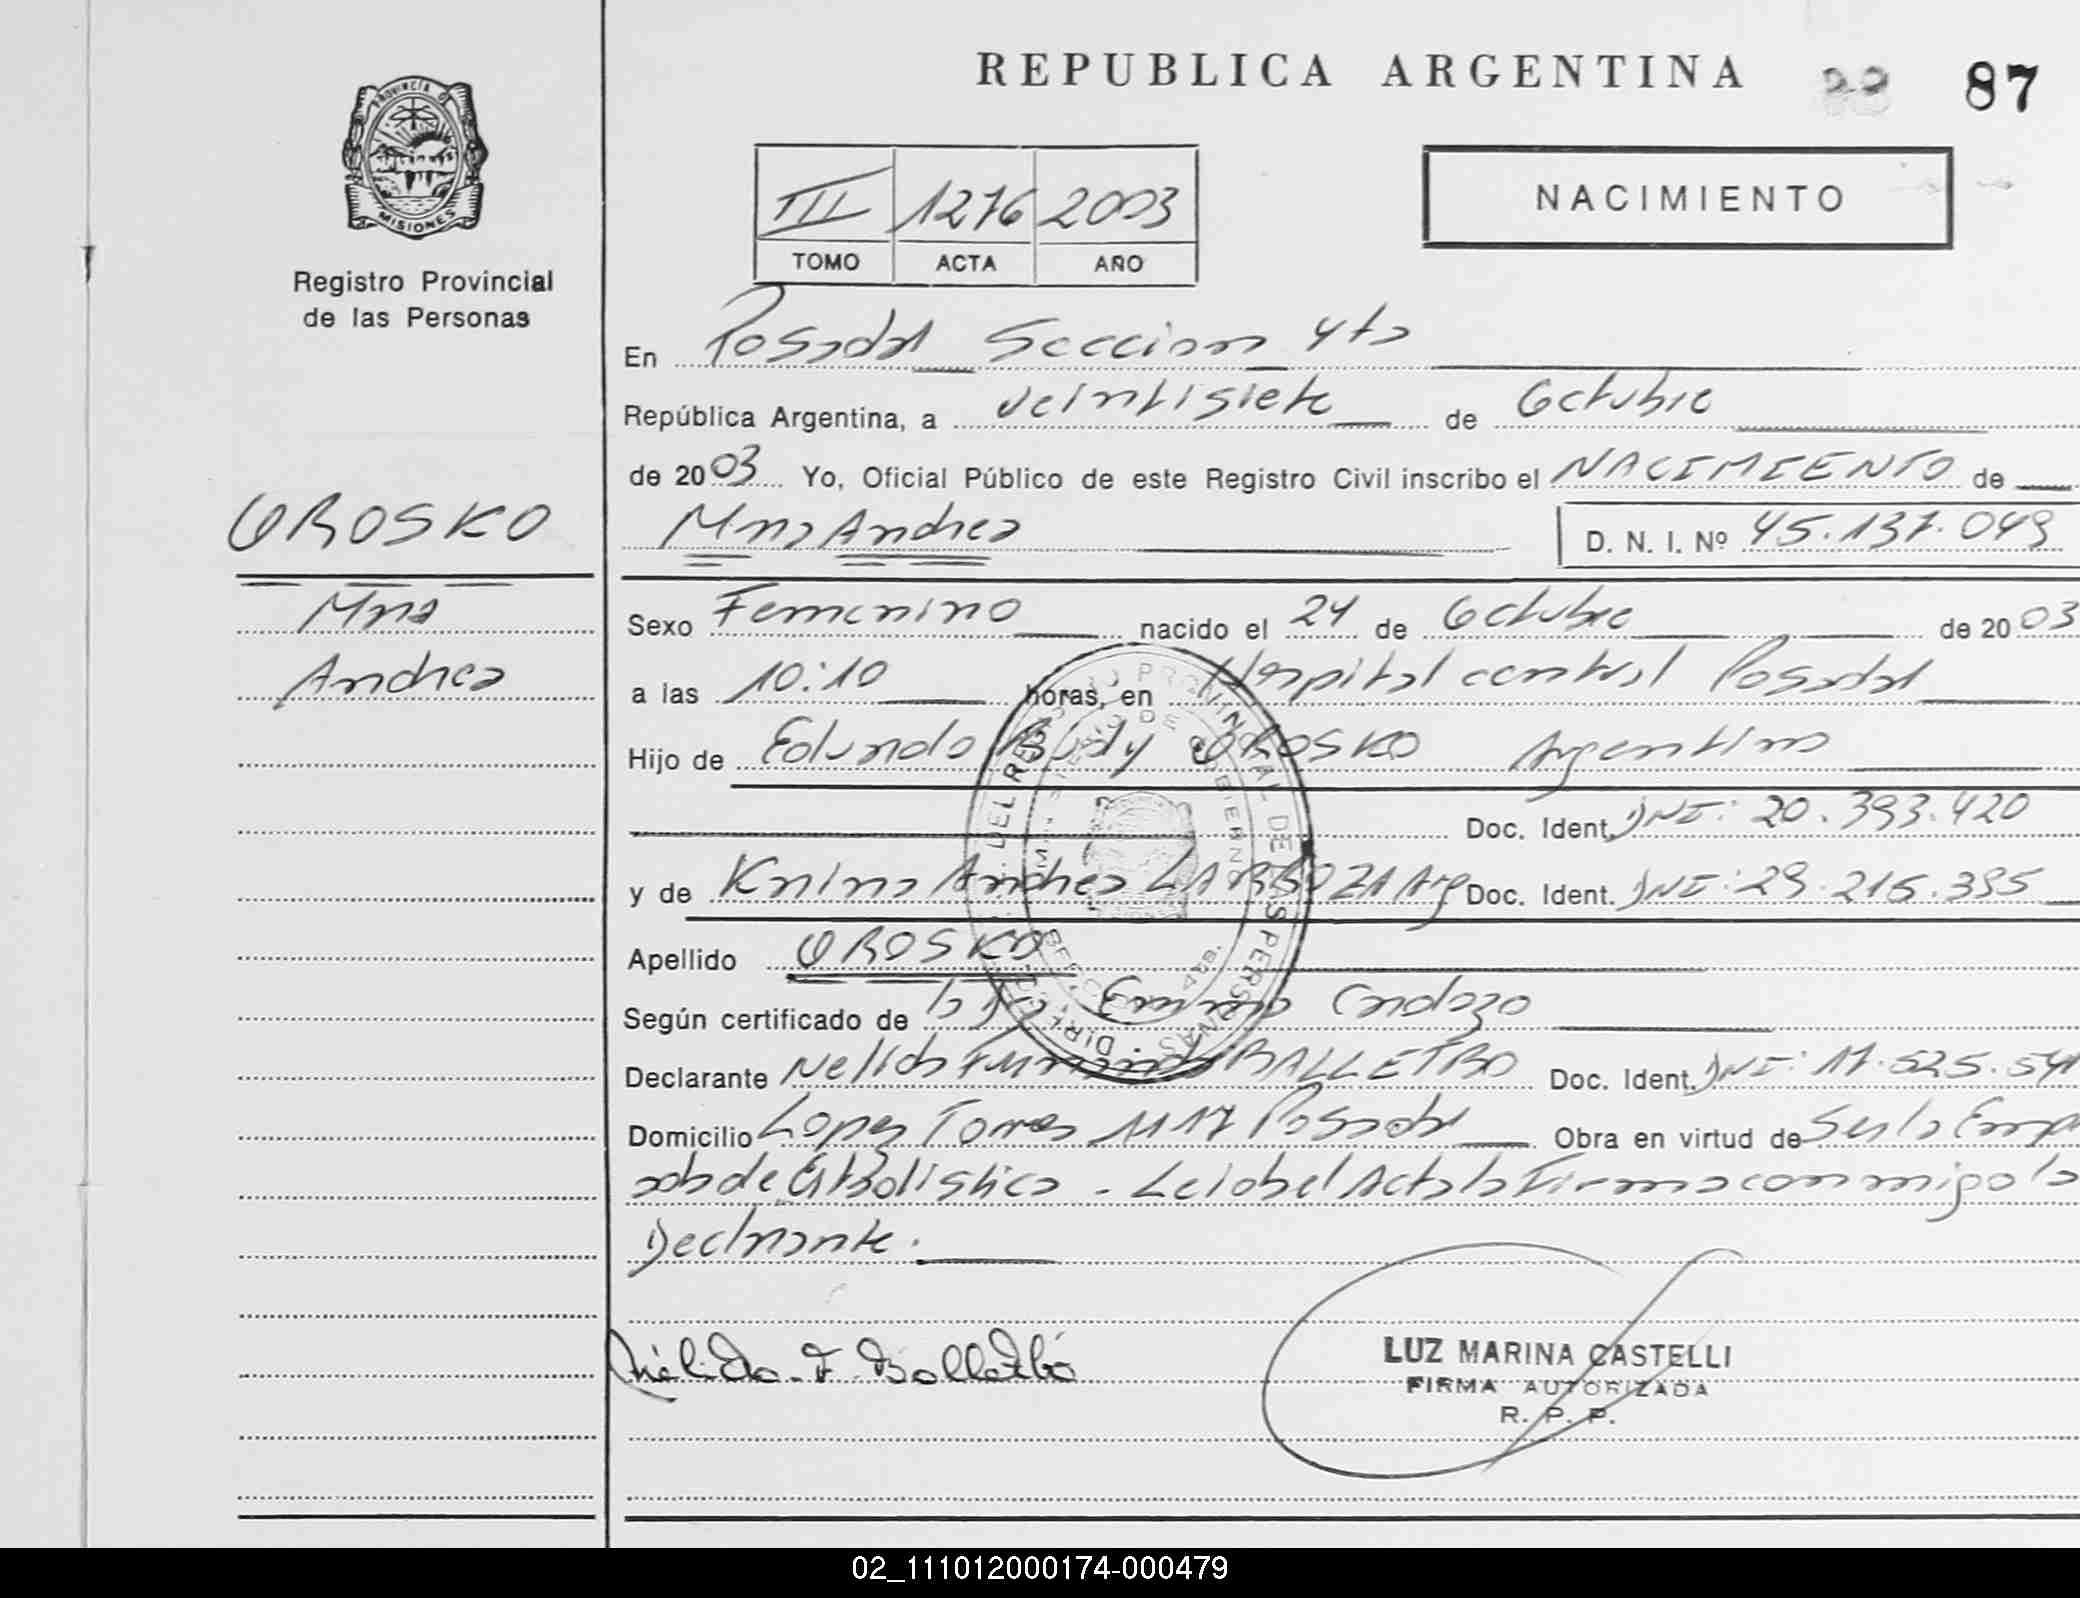 REPUBLICA ARGENTINA 87
PROVINCIA DE
MISIONES
Registro Provincial
de las Personas
III 1276 2003
TOMO ACTA AÑO
NACIMIENTO
En Posadas Seccion 4ta
República Argentina, a veintisiete de Octubre
de 2003 Yo, Oficial Público de este Registro Civil inscribo el NACIMIENTO de
OROSKO
Mna Andrea D. N. I. Nº 45.137.049
Mna
Andrea
Sexo Femenino nacido el 24 de Octubre de 2003
a las 10:10 horas, en Hospital central Posadas
Hijo de Edundo Rudy OROSKO Argentino
Doc. Ident. DNI: 20.393.420
y de Karina Andrea LARROZA Arg Doc. Ident. DNI: 29.215.395
Apellido OROSKO
Según certificado de la Cardozo
Declarante Nelida BALLETBO Doc. Ident. DNI: 17.525.541
Domicilio Lopez Torres 1117 Posadas Obra en virtud de ser la Emple
ada de Estadistica - Leida el Acta la Firma conmigo la
Declarante.
Nélida. F. Balletbó
LUZ MARINA CASTELLI
FIRMA AUTORIZADA
R. P. P.
02_111012000174-000479